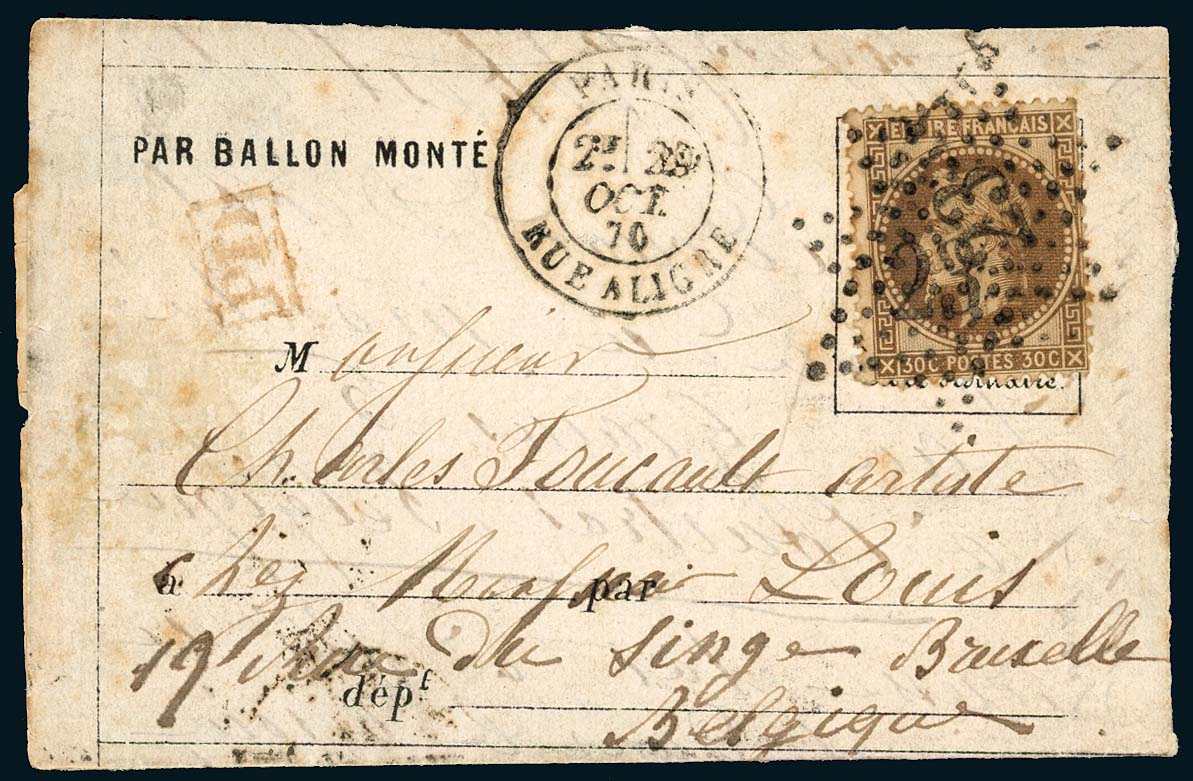 PAR BALLON MONTÉ
PARIS
2E 28
OCT.
70
RUE ALIGRE
PP
EMPIRE FRANÇAIS
30C POSTES 30C
ordinaire.
Monsieur
Charles Foucault artiste
à chez Monsieur par Louis
19 Rue du Singe Bruxelle
dépt
Belgique